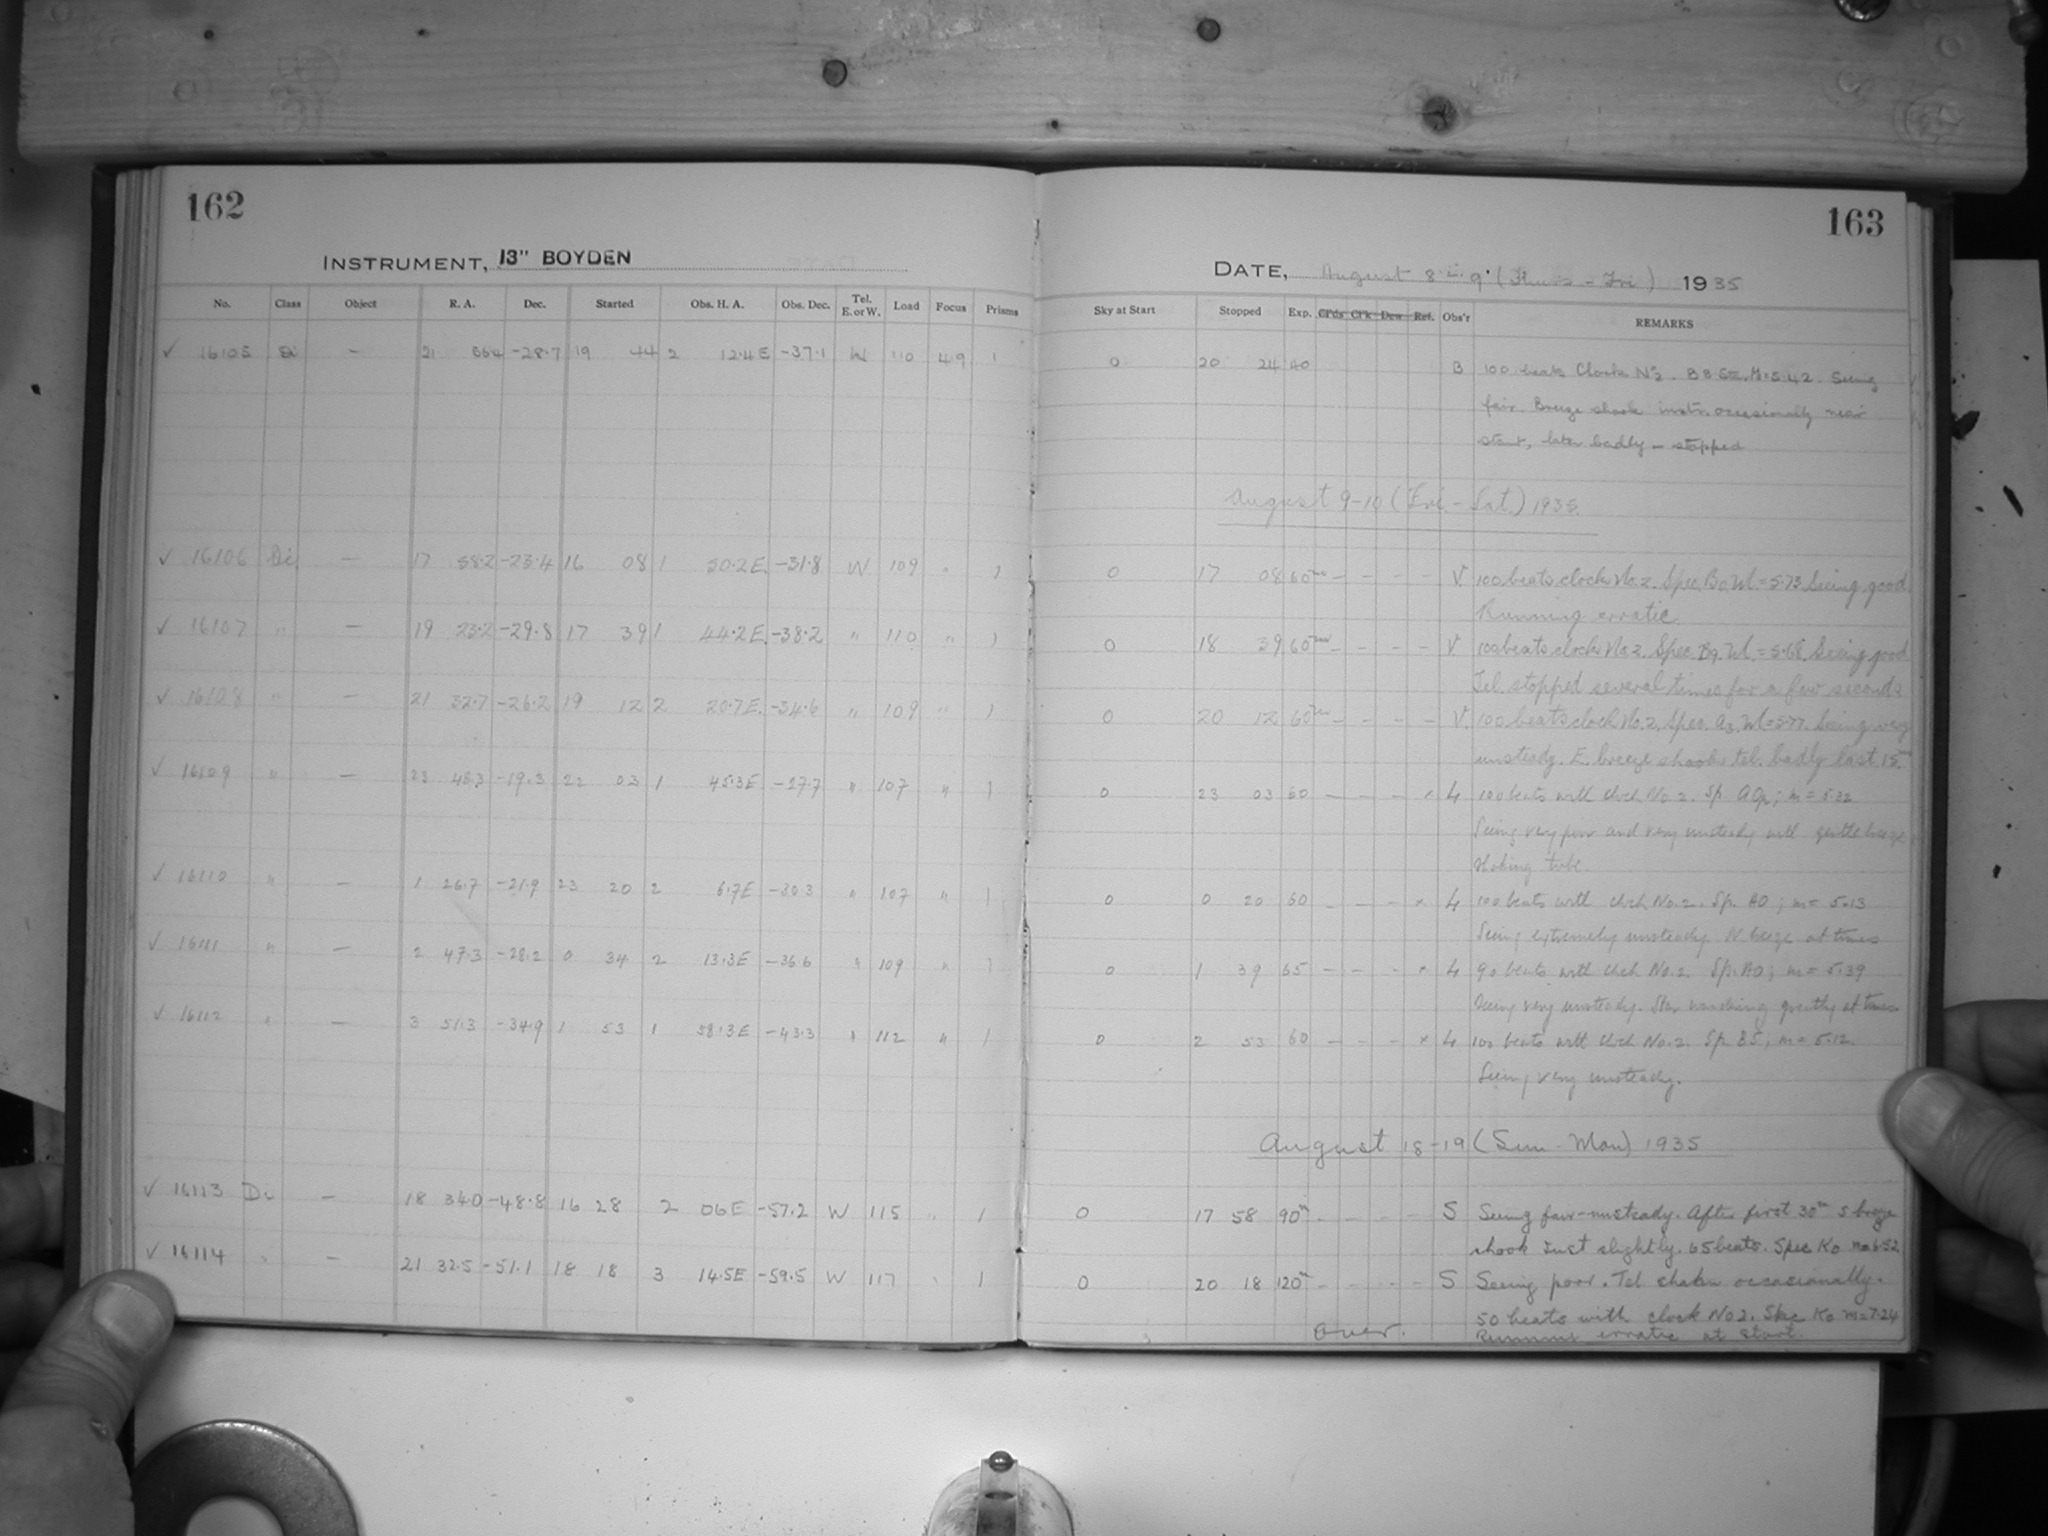 162
INSTRUMENT, 13" BOYDEN
No. Class Object R. A. Dec. Started Obs. H. A. Obs. Dec. Tel. E. or W. Load Focus Prisms
✓ 16105 Di — 21 56.4 -28.7 19 44 2 12.4E -37.1 W 110 49 1
✓ 16106 Di — 17 58.2 -23.4 16 08 1 50.2E -31.8 W 109 " 1
✓ 16107 " — 19 23.2 -29.8 17 39 1 44.2E -38.2 " 110 " 1
✓ 16108 " — 21 32.7 -26.2 19 12 2 20.7E -34.6 " 109 " 1
✓ 16109 " — 23 48.3 -19.3 22 03 1 45.3E -27.7 " 107 " 1
✓ 16110 " — 1 26.7 -21.9 23 20 2 6.7E -30.3 " 107 " 1
✓ 16111 " — 2 47.3 -28.2 0 34 2 13.3E -36.6 " 109 " 1
✓ 16112 " — 3 51.3 -34.9 1 53 1 58.3E -43.3 " 112 " 1
✓ 16113 Di — 18 34.0 -48.8 16 28 2 06E -57.2 W 115 " 1
✓ 16114 " — 21 32.5 -51.1 18 18 3 14.5E -59.5 W 117 " 1
163
DATE, August 8-9 (Thurs - Fri) 1935
Sky at Start Stopped Exp. Cl'ds Cl'k Dew Ref. Obs'r REMARKS
0 20 24 40 B 100 beats Clock No 2. Seeing
fair. Breeze shook instr. occasionally near
start, later badly — stopped
August 9-10 (Fri. - Sat.) 1935.
0 17 08 60 — — — — V 100 beats clock No. 2. Spec. = 5.73 Seeing good
Running erratic
0 18 39 60 — — — — V 100 beats clock No. 2. Spec. = 5.68. Seeing good
Tel. stopped several times for a few seconds
0 20 12 60 — — — — V 100 beats clock No. 2. Spec. = 5.77. Seeing very
unsteady. E. breeze shook tel. badly last 15
0 23 03 60 — — — × 4 100 beats with clock No. 2. Sp. ; m = 5.22
Seeing very poor and very unsteady with gentle breeze
shaking tube.
0 0 20 60 — — — × 4 100 beats with clock No. 2. Sp. A0 ; m = 5.13
Seeing extremely unsteady N breeze at times
0 1 39 65 — — — × 4 90 beats with clock No. 2. Sp. A0 ; m = 5.39
Seeing very unsteady. Star wandering greatly at times
0 2 53 60 — — — × 4 100 beats with clock No. 2. Sp. B5 ; m = 5.12.
Seeing very unsteady.
August 18-19 (Sun - Mon) 1935
0 17 58 90m — — — — S Seeing fair-unsteady. After first 30m S breeze
shook inst slightly. 65 beats. Spec Ko m=6.52
0 20 18 120m — — — — S Seeing poor. Tel shaken occasionally.
50 beats with clock No 2. Spec Ko m=7.24
Running erratic at start.
Over.